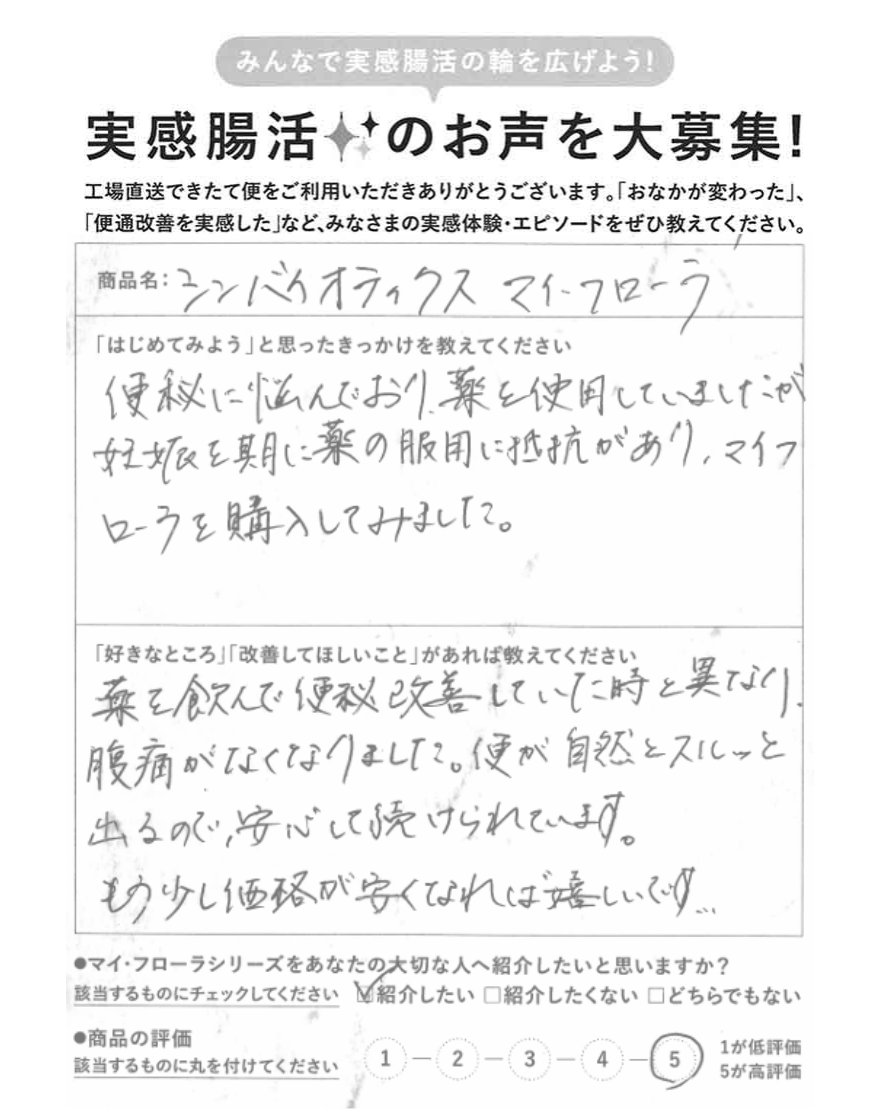 みんなで実感腸活の輪を広げよう!
実感腸活のお声を大募集!
工場直送できたて便をご利用いただきありがとうございます。「おなかが変わった」、
「便通改善を実感した」など、みなさまの実感体験・エピソードをぜひ教えてください。
商品名:シンバイオティクス マイ・フローラ
「はじめてみよう」と思ったきっかけを教えてください
便秘に悩んでおり、薬を使用していましたが
妊娠を期に薬の服用に抵抗があり、マイフ
ローラを購入してみました。
「好きなところ」「改善してほしいこと」があれば教えてください
薬を飲んで便秘改善していた時と異なり、
腹痛がなくなりました。便が自然とスルッと
出るので、安心して続けられています。
もう少し価格が安くなれば嬉しいです…
●マイ・フローラシリーズをあなたの大切な人へ紹介したいと思いますか?
該当するものにチェックしてください ☑紹介したい □紹介したくない □どちらでもない
●商品の評価
該当するものに丸を付けてください
1 — 2 — 3 — 4 — 5
1が低評価
5が高評価